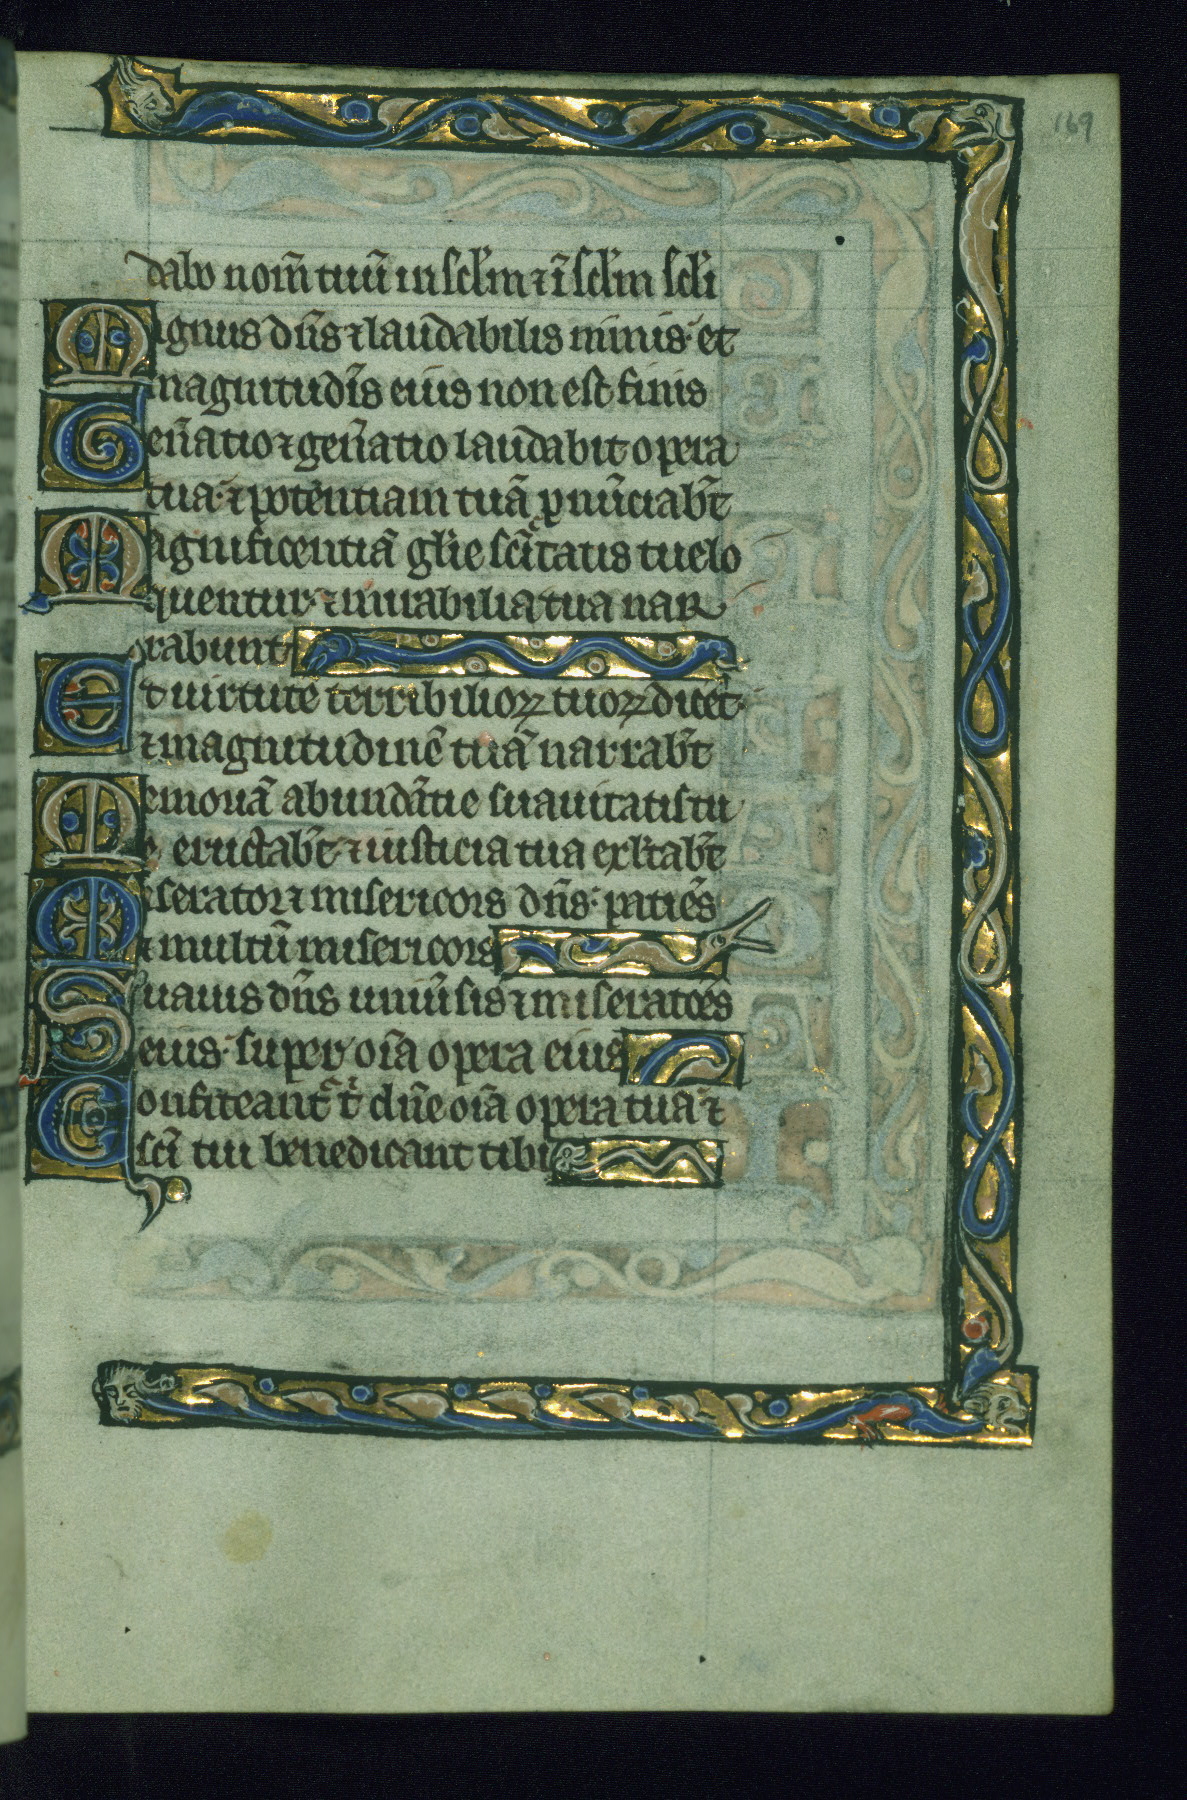 169
dabo nom̄ tuū in sc̄lm ⁊ ī sc̄lm sc̄li
Magnus dn̄s ⁊ laudabilis nimis· et
magnitudīs eius non est finis
Gen̄atio ⁊ gen̄atio laudabit opera
tua· ⁊ potentiam tuā ꝓnūciab̄t
Magnificentiā gl̄ie sc̄itatis tue lo
quentur· ⁊ mirabilia tua nar
rabunt
Et uirtutē terribilioꝝ tuoꝝ dicēt·
⁊ magnitudinē tuā narrab̄t
Memoriā abundātie suauitatis tu
e eructab̄t· ⁊ iusticia tua exl̄tab̄t
Miserator ⁊ misericors dn̄s· patiēs
⁊ multū misericors
Suauis dn̄s uniūsis ⁊ miseratōes
eius· super oīa opera eius
Confiteant᷑ t̄ dn̄e oīa opera tua· ⁊
sc̄i tui benedicant tibi